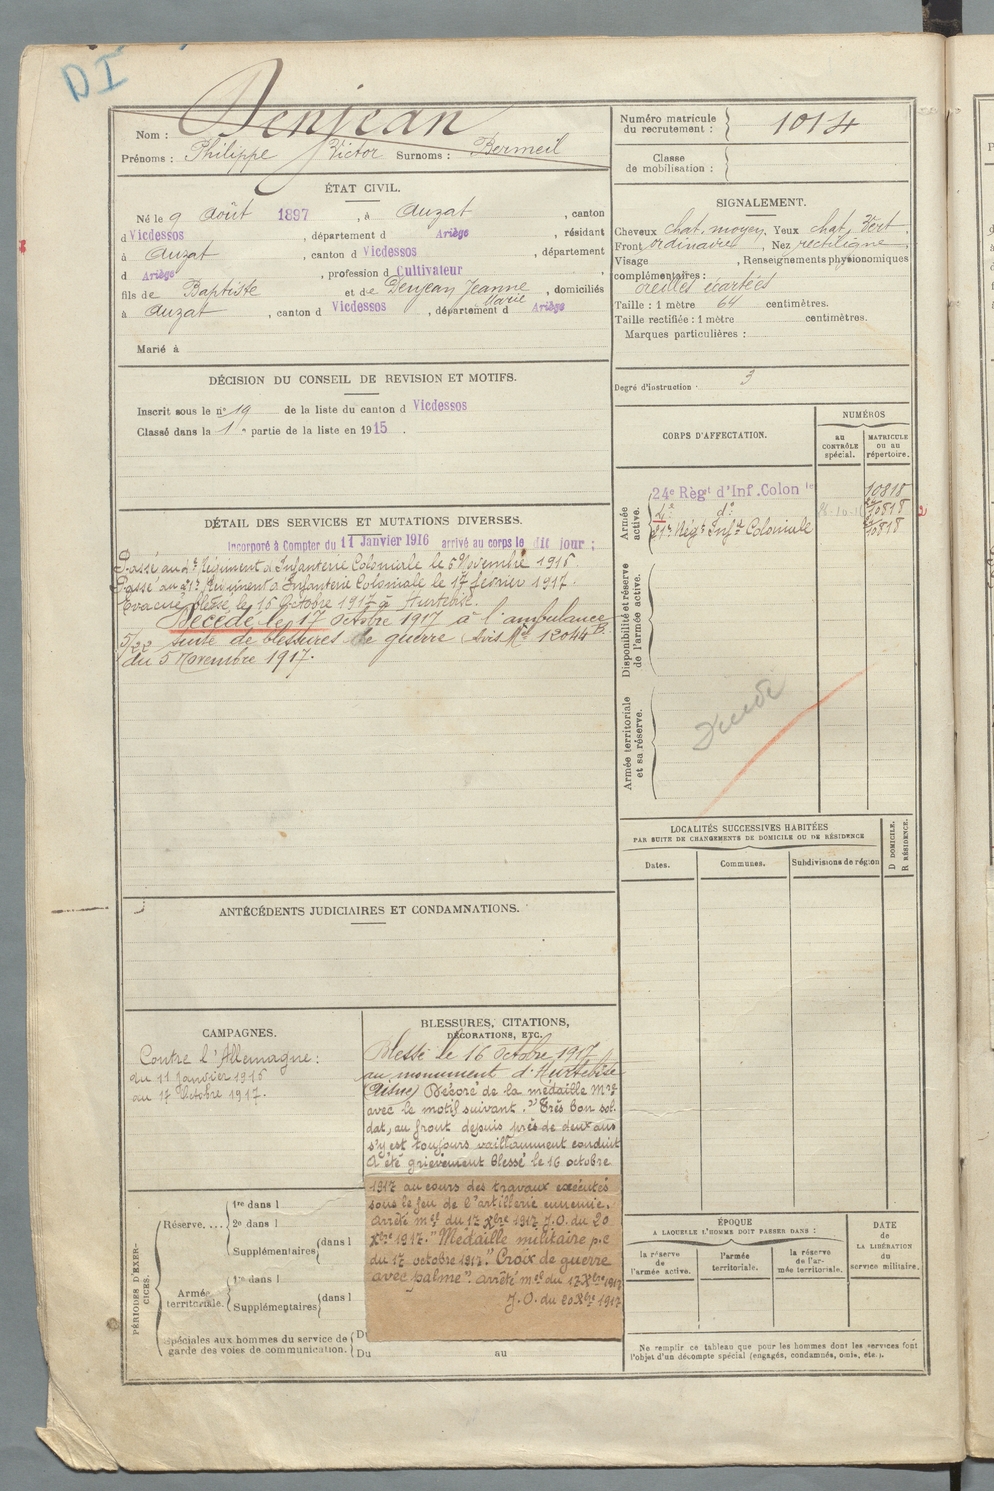 DI
Nom : Denjean
Prénoms : Philippe Victor Surnoms : Bermeil
Numéro matricule
du recrutement : 1014
Classe
de mobilisation :
ÉTAT CIVIL.
Né le 9 Août 1897, à Auzat, canton
d Vicdessos, département d Ariège, résidant
à Auzat, canton d Vicdessos, département
d Ariège, profession d Cultivateur,
fils de Baptiste et de Denjean Jeanne Marie, domiciliés
à Auzat, canton d Vicdessos, département d Ariège
Marié à
SIGNALEMENT.
Cheveux chat. moyen. Yeux chat. Vert.
Front ordinaire, Nez rectiligne,
Visage , Renseignements physionomiques
complémentaires :
oreilles écartées
Taille : 1 mètre 64 centimètres.
Taille rectifiée : 1 mètre centimètres.
Marques particulières :
Degré d'instruction : 3
DÉCISION DU CONSEIL DE REVISION ET MOTIFS.
Inscrit sous le n° 19 de la liste du canton d Vicdessos
Classé dans la 1re partie de la liste en 1915.
CORPS D'AFFECTATION.
NUMÉROS
AU
CONTRÔLE
spécial.
MATRICULE
ou au
répertoire.
Armée
active.
24e Régt d'Inf. Colonle 10818
4e do 10818
21e Régt Infie Coloniale 10818
Disponibilité et réserve
de l'armée active.
Armée territoriale
et sa réserve.
DÉTAIL DES SERVICES ET MUTATIONS DIVERSES.
Incorporé à Compter du 11 Janvier 1916 arrivé au corps le dit jour ;
Passé au 4e Régiment d'Infanterie Coloniale le 6 Novembre 1916.
Passé au 21e Régiment d'Infanterie Coloniale le 17 février 1917.
Evacué blessé le 16 Octobre 1917 à Hurtebise.
Décédé le 17 Octobre 1917 à l'ambulance
5/22 suite de blessures de guerre Avis Mel 12044 B.
du 5 Novembre 1917.
LOCALITÉS SUCCESSIVES HABITÉES
PAR SUITE DE CHANGEMENTS DE DOMICILE OU DE RÉSIDENCE
Dates.
Communes.
Subdivisions de région
D DOMICILE.
R RÉSIDENCE.
ANTÉCÉDENTS JUDICIAIRES ET CONDAMNATIONS.
CAMPAGNES.
Contre l'Allemagne :
du 11 Janvier 1916
au 17 Octobre 1917.
BLESSURES, CITATIONS,
DÉCORATIONS, ETC.
Blessé le 16 Octobre 1917
au monument d'Hurtebise
(Aisne) Décoré de la médaille Mre
avec le motif suivant. "Très bon sol-
dat, au front depuis près de deux ans
s'y est toujours vaillamment conduit
A été grièvement blessé le 16 octobre
1917 au cours des travaux exécutés
sous le feu de l'artillerie ennemie.
Arrêté mel du 17 Xbre 1917 J.O. du 20
Xbre 1917. "Médaille militaire p.c
du 17 octobre 1917." Croix de guerre
avec palme". arrêté mel du 17 Xbre 1917
J.O. du 20 Xbre 1917
PÉRIODES D'EXER-
CICES.
Réserve....
1re dans l
2e dans l
Supplémentaires dans l
Armée
territoriale.
1re dans l
Supplémentaires dans l
Spéciales aux hommes du service de
garde des voies de communication.
Du
Du au
ÉPOQUE
A LAQUELLE L'HOMME DOIT PASSER DANS :
la réserve
de
l'armée active.
l'armée
territoriale.
la réserve
de l'ar-
mée territoriale.
DATE
de
LA LIBÉRATION
du
service militaire.
Ne remplir ce tableau que pour les hommes dont les services font
l'objet d'un décompte spécial (engagés, condamnés, omis, etc.).